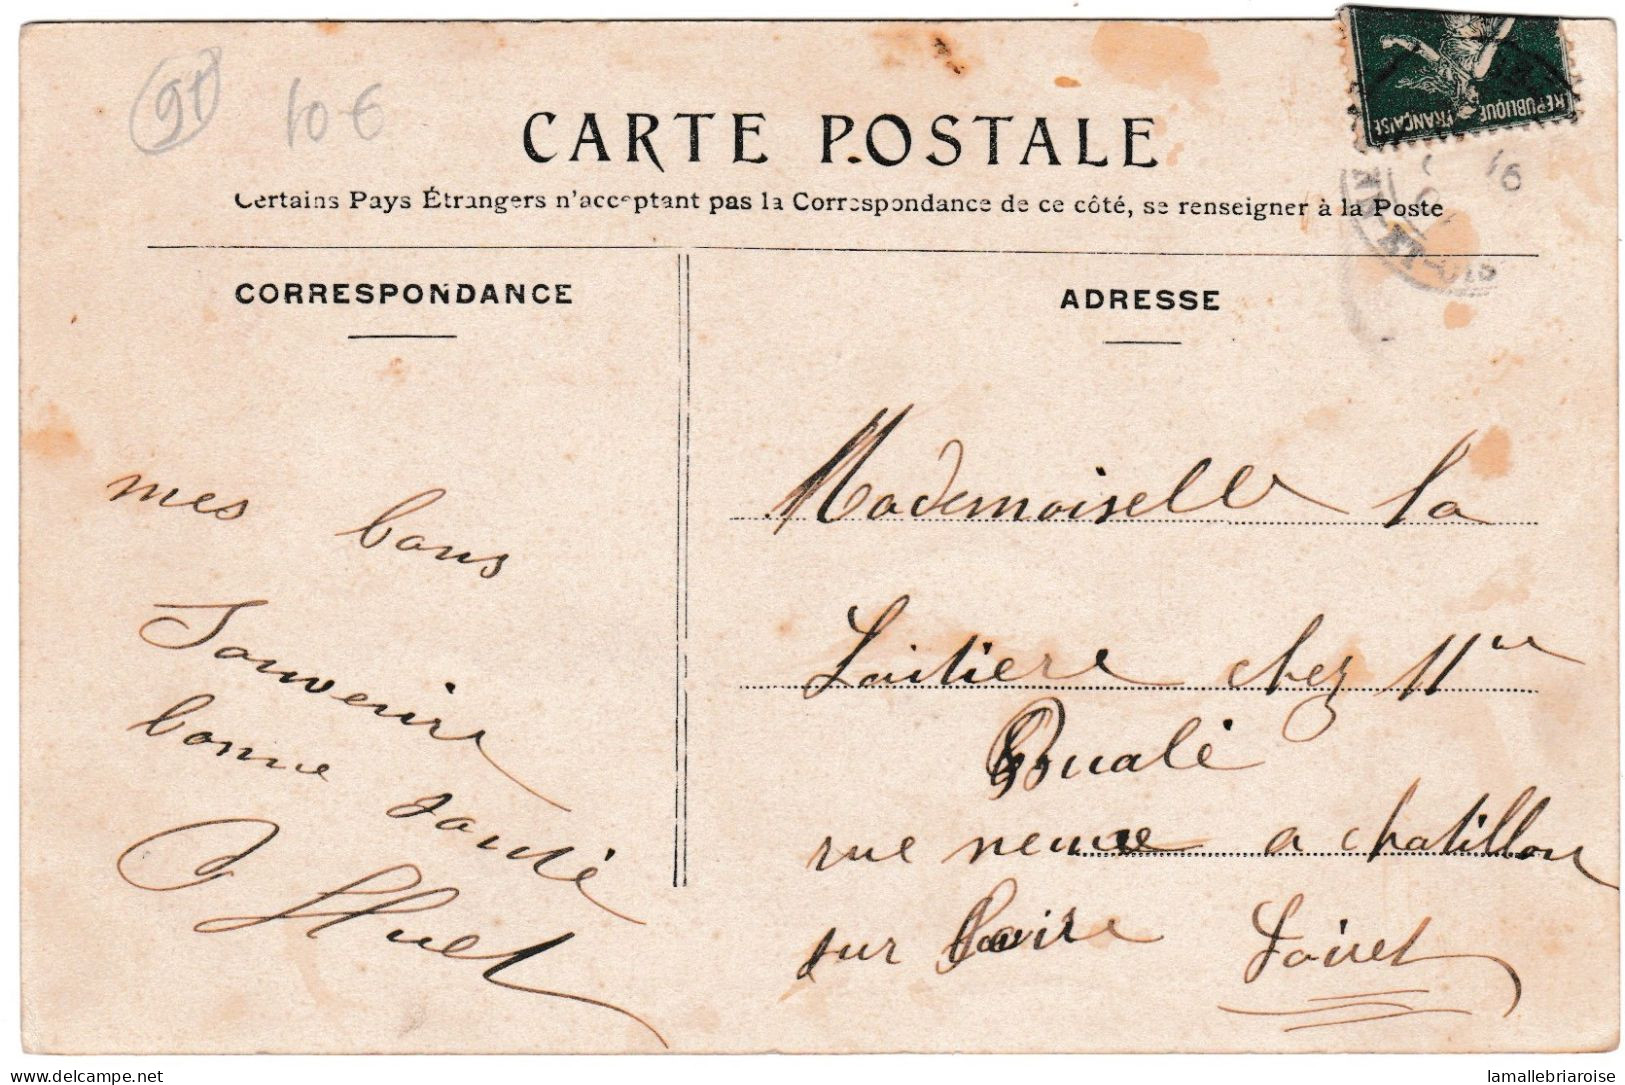 91
10€
CARTE POSTALE
Certains Pays Étrangers n'acceptant pas la Correspondance de ce côté, se renseigner à la Poste
RÉPUBLIQUE FRANÇAISE
16
CORRESPONDANCE
mes bons
Souvenire
bonne santé
Huet
ADRESSE
Mademoiselle la
Laitiere chez Mme
Bualé
rue neuve a chatillon
sur Loire Loiret
delcampe.net
lamallebriaroise